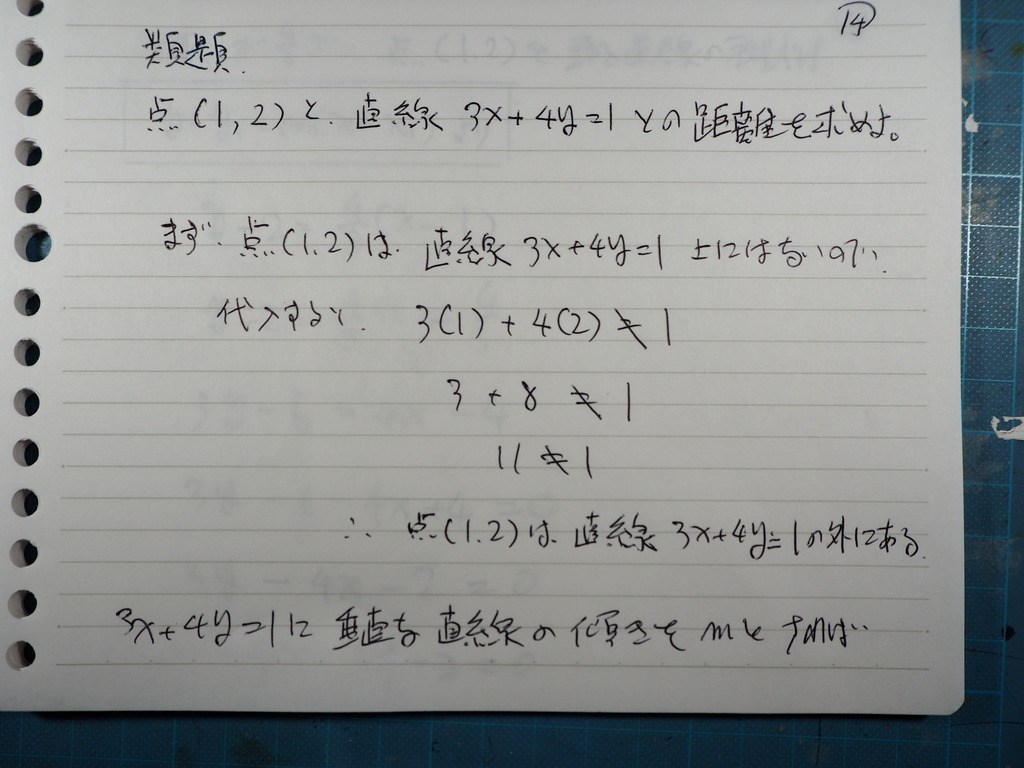 ⑭
類題.
点(1,2)と、直線 3x+4y=1 との距離を求めよ。
まず、点(1.2)は、直線 3x+4y=1 上にはないので、
代入すると、 3(1) + 4(2) ≠ 1
3 + 8 ≠ 1
11 ≠ 1
∴ 点(1.2)は、直線 3x+4y=1の外にある.
3x+4y=1に垂直な直線の傾きをmとすれば